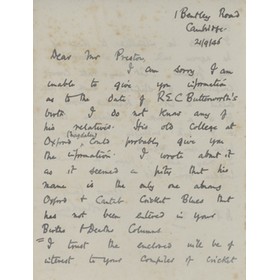 1 Bentley Road
Cambridge.
21/9/46
Dear Mr Preston,
I am sorry I am
unable to give you information
as to the date of R.E.C Butterworth's
I do not know any of
his relatives. His old college at
Oxford, could probably give you
the information. I wrote about it
as it seemed a pity that his
name is the only one among
Oxford & Cantab Cricket Blues that
has not been entered in your
Births & Deaths Column
I trust the enclosed will be of
interest to your Compiler of Cricket